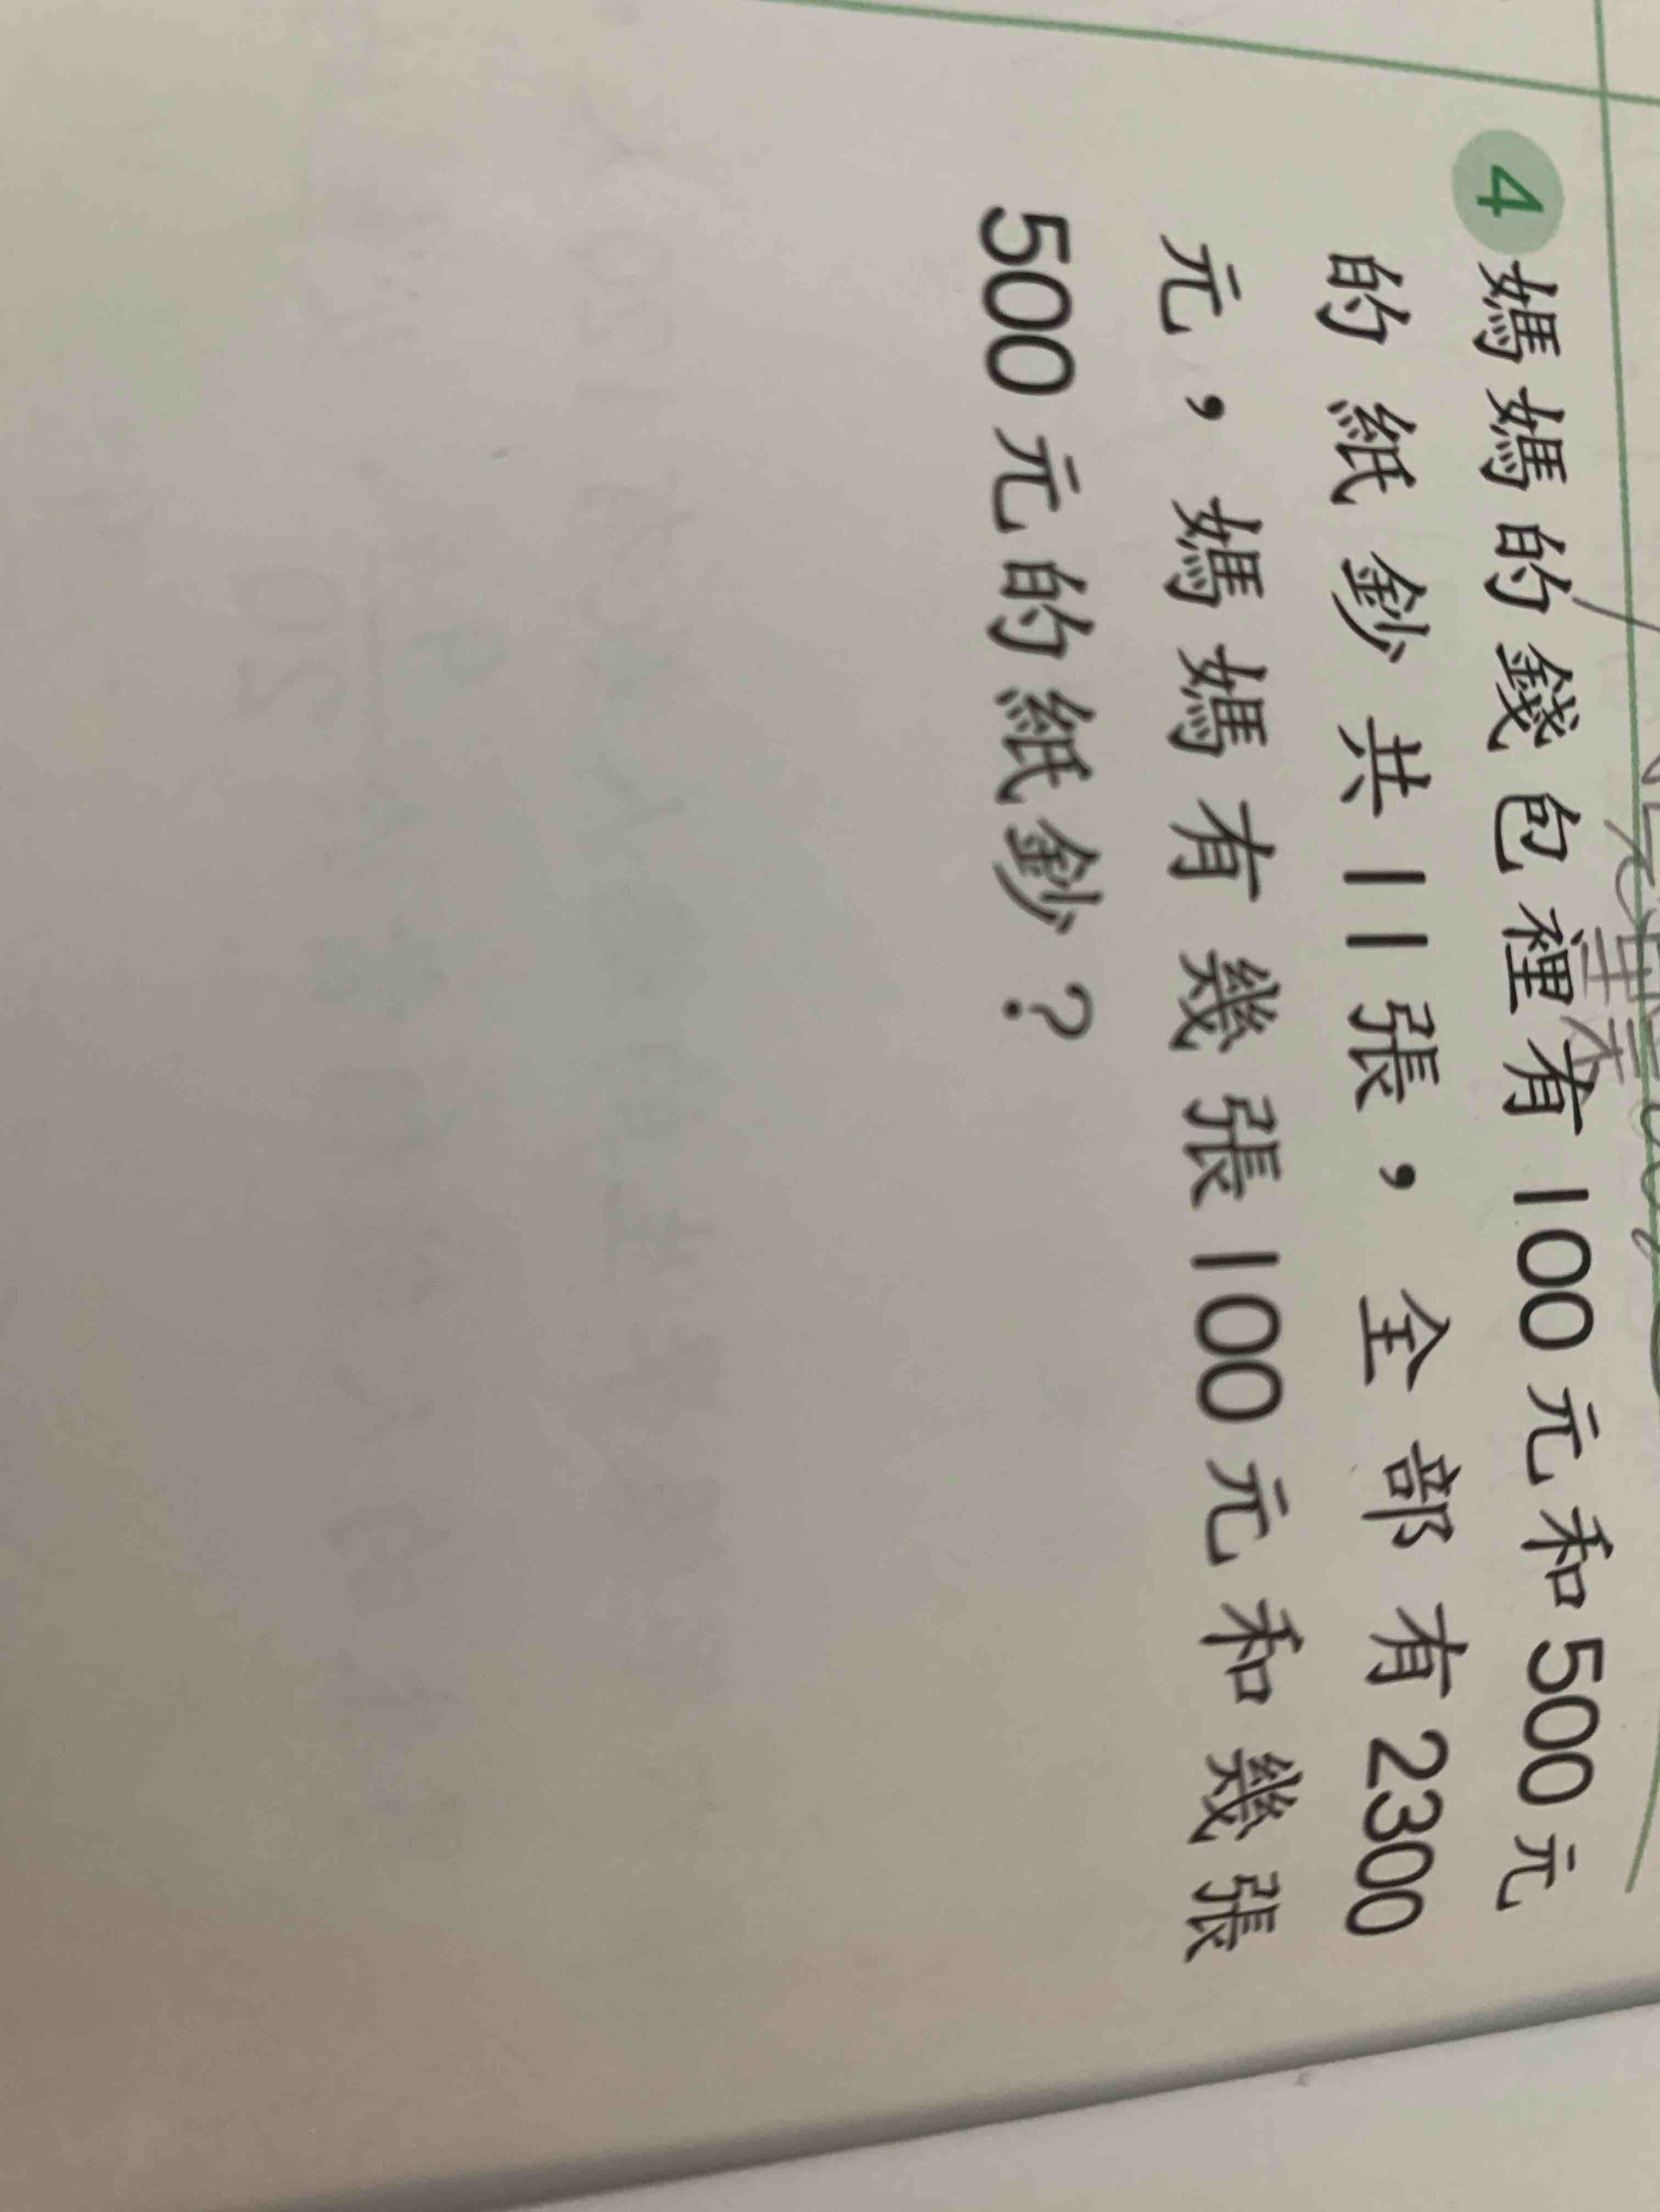 4 媽媽的錢包裡有100元和500元
的紙鈔共11張，全部有2300
元，媽媽有幾張100元和幾張
500元的紙鈔？